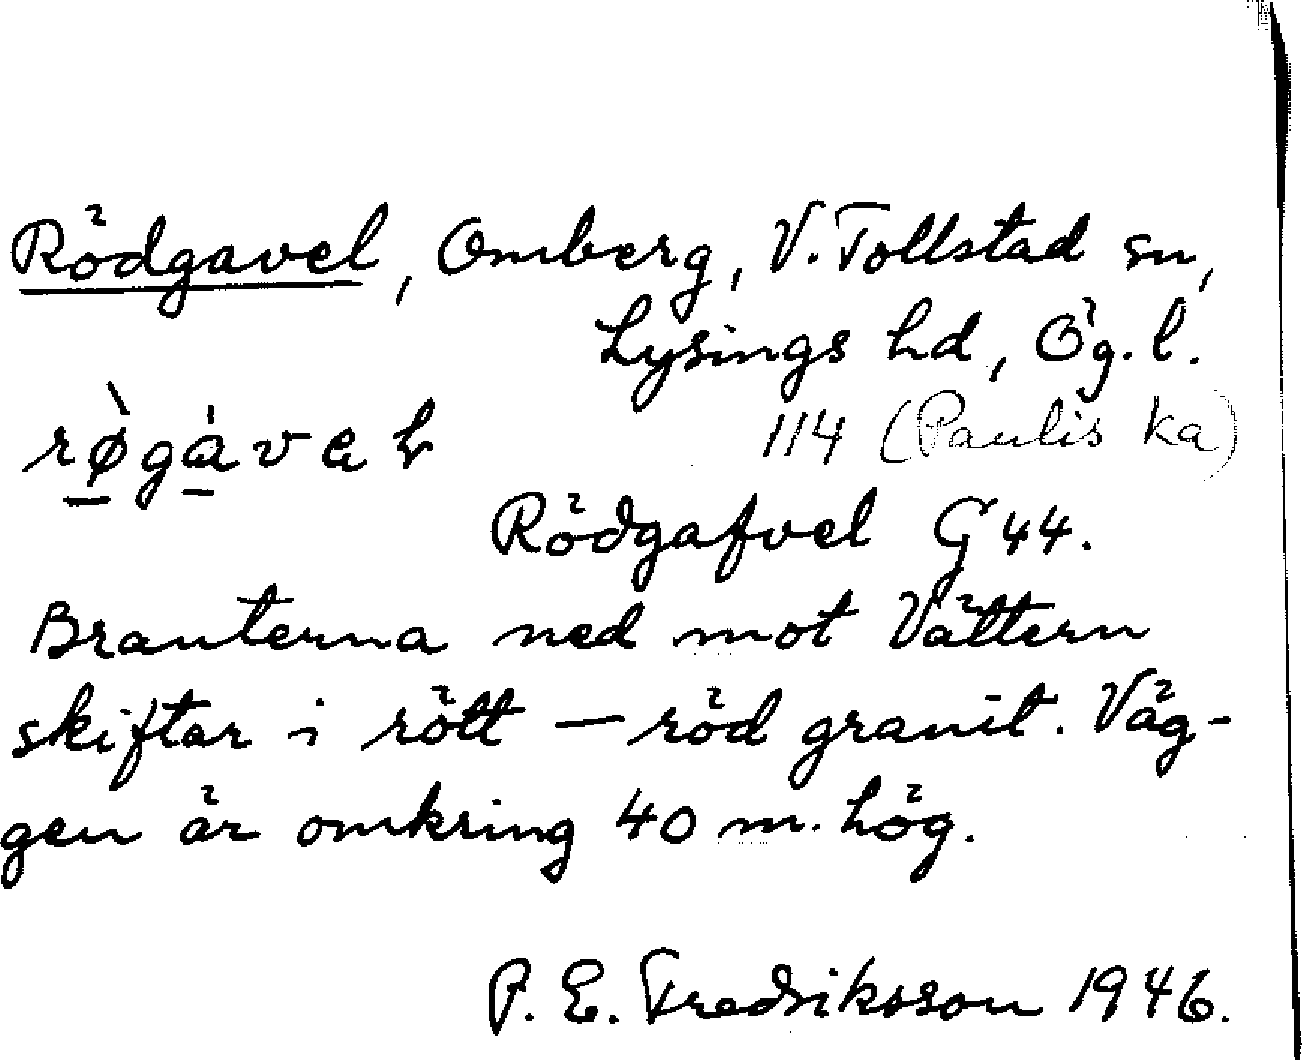 Rödgavel, Omberg, V. Tollstad sn,
Lysings hd, Ög. l.
rø̀gávaɫ 114 (Paulis ka)
Rödgafvel G 44.
Branterna ned mot Vättern
skiftar i rött — röd granit. Väg-
gen är omkring 40 m. hög.
P. E. Fredriksson 1946.